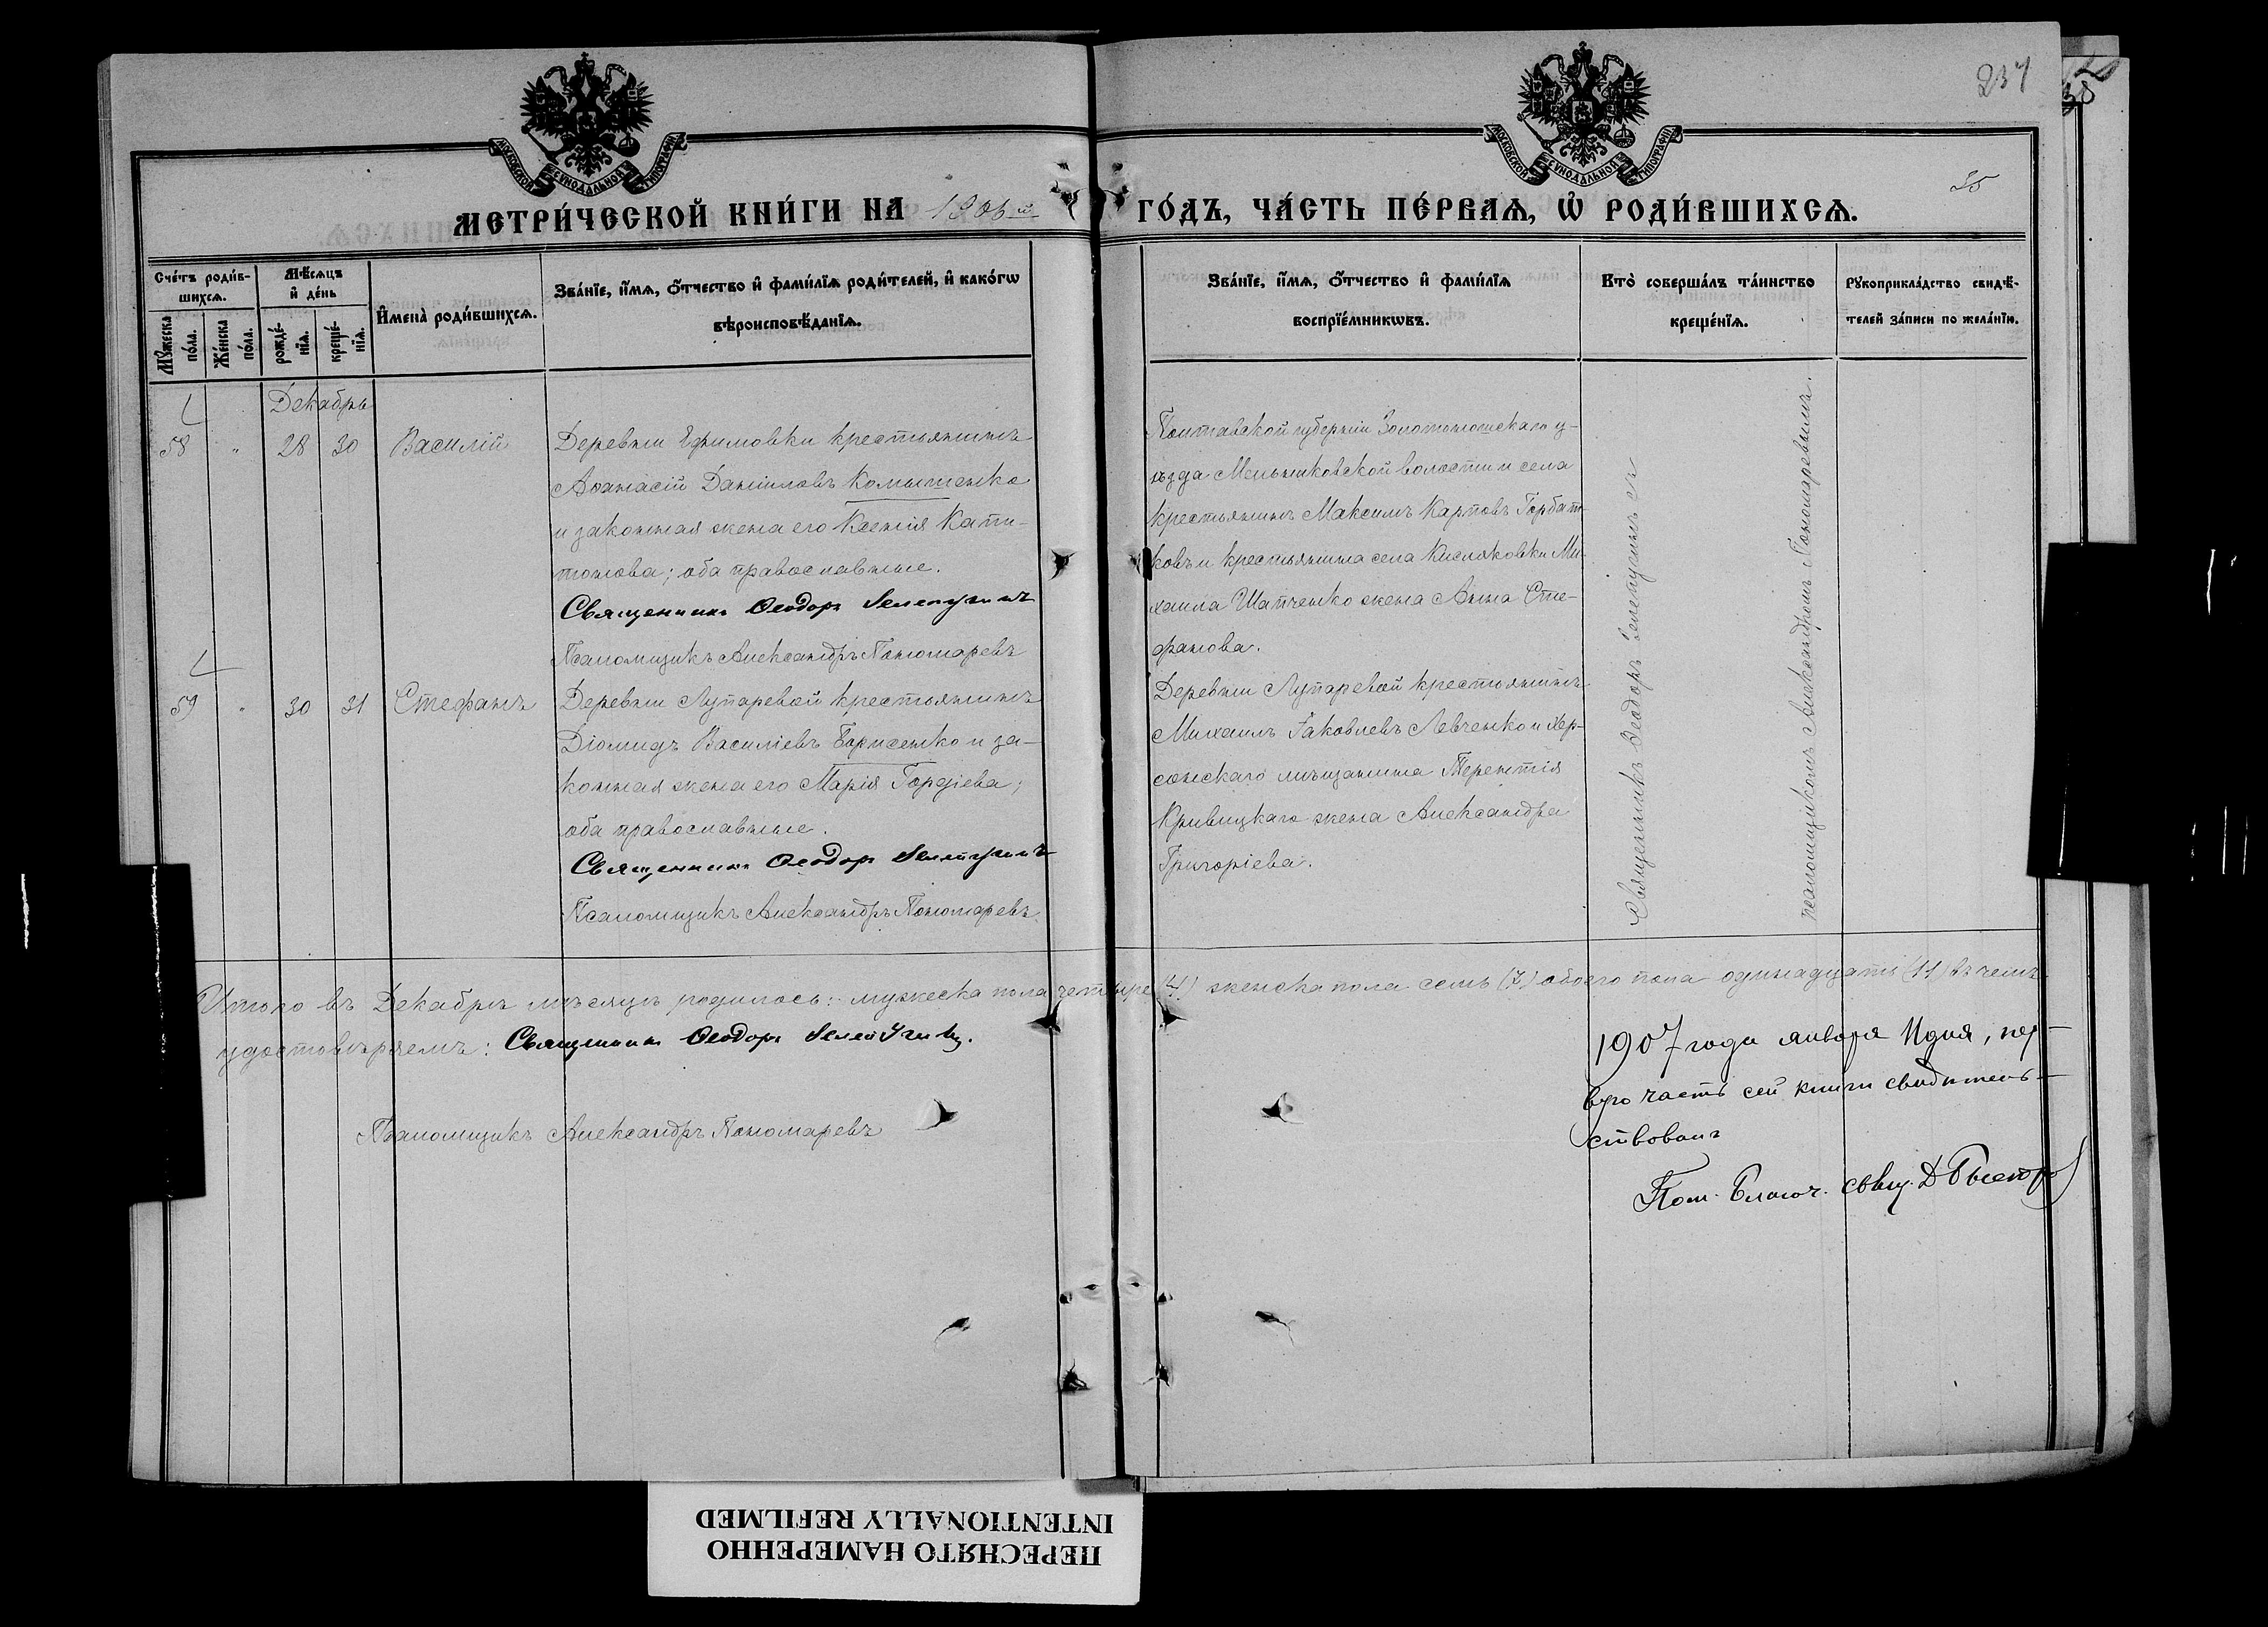 237
35
МОСКОВСКОЙ СѴНОДАЛЬНОЙ ТИПОГРАФІИ
МОСКОВСКОЙ СѴНОДАЛЬНОЙ ТИПОГРАФІИ
МЕТРИ́ЧЕСКОЙ КНИ́ГИ НА 1906 й
ГО́ДЪ, ЧА́СТЬ ПЕ́РВАѦ, Ѽ РОДИ́ВШИХСѦ.
Сче́тъ роди́в-
шихсѧ.
Мꙋ́жеска по́ла.
Же́нска по́ла.
Мѣ́сѧцъ
и҆ де́нь
рожде́-
нїѧ.
креще́-
нїѧ.
И҆мена̀ роди́вшихсѧ.
Зва́нїе, и҆́мѧ, ѻ҆́тчество и҆ фами́лїѧ роди́телей, и҆ како́гѡ
вѣроисповѣ́данїѧ.
Зва́нїе, и҆́мѧ, ѻ҆́тчество и҆ фами́лїѧ
воспрїе́мникѡвъ.
Кто̀ соверша́лъ та́инство
креще́нїѧ.
Рꙋкоприкла́дство свидѣ́-
телей за́писи по жела́нїю.
Декабрь
58 " 28 30 Василій
Деревни Ефимовки крестьянинъ
Аѳанасій Даніиловъ Комышенко
и законная жена его Ксенія Капи-
тонова; оба православные.
Священникъ Ѳеодоръ
Псаломщикъ Александръ Пономаревъ
Полтавской губерніи Золотоношскаго у-
ѣзда Мельниковской волости и села
крестьянинъ Максимъ Карповъ Горбат-
ковъ и крестьянина села Кисляковки Ми-
хаила Шатченко жена Анна Сте-
фанова.
59 " 30 31 Стефанъ
Деревни Лупаревой крестьянинъ
Діомидъ Василіевъ Борисенко и за-
конная жена его Марія Гордіева;
оба православные.
Священникъ Ѳеодоръ
Псаломщикъ Александръ Пономаревъ.
Деревни Лупаревой крестьянинъ
Михаилъ Іаковлевъ Левченко и Хер-
сонскаго мѣщанина Терентія
Кривицкаго жена Александра
Григоріева.
Священникъ Ѳеодоръ съ
псаломщикомъ Александромъ Пономаревымъ.
Итого въ Декабрѣ мѣсяцѣ родилось: мужеска пола четыре (4) женска пола семь (7) обоего пола одинадцать (11) въ чемъ
удостовѣряемъ: Священникъ Ѳеодоръ
Псаломщикъ Александръ Пономаревъ
1907 года января дня, пер-
вую часть сей книги свидѣтель-
ствовалъ
Пом. Благоч. свящ. Д.
ПЕРЕСНЯТО НАМЕРЕННО
INTENTIONALLY REFILMED